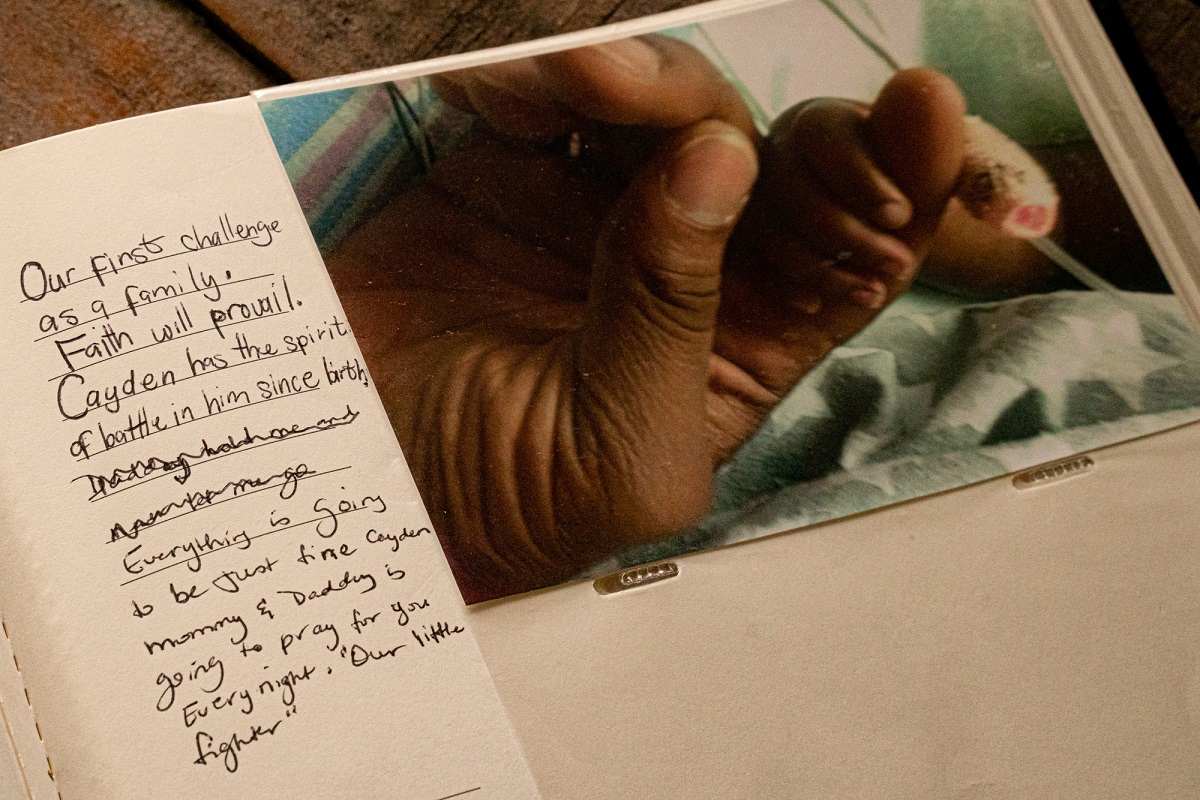 Our first challenge
as a family.
Faith will provail.
Cayden has the spirit
of battle in him since birth.
Everything is going
to be just fine Cayden
mommy & Daddy is
going to pray for you
Every night. "Our little
fighter"